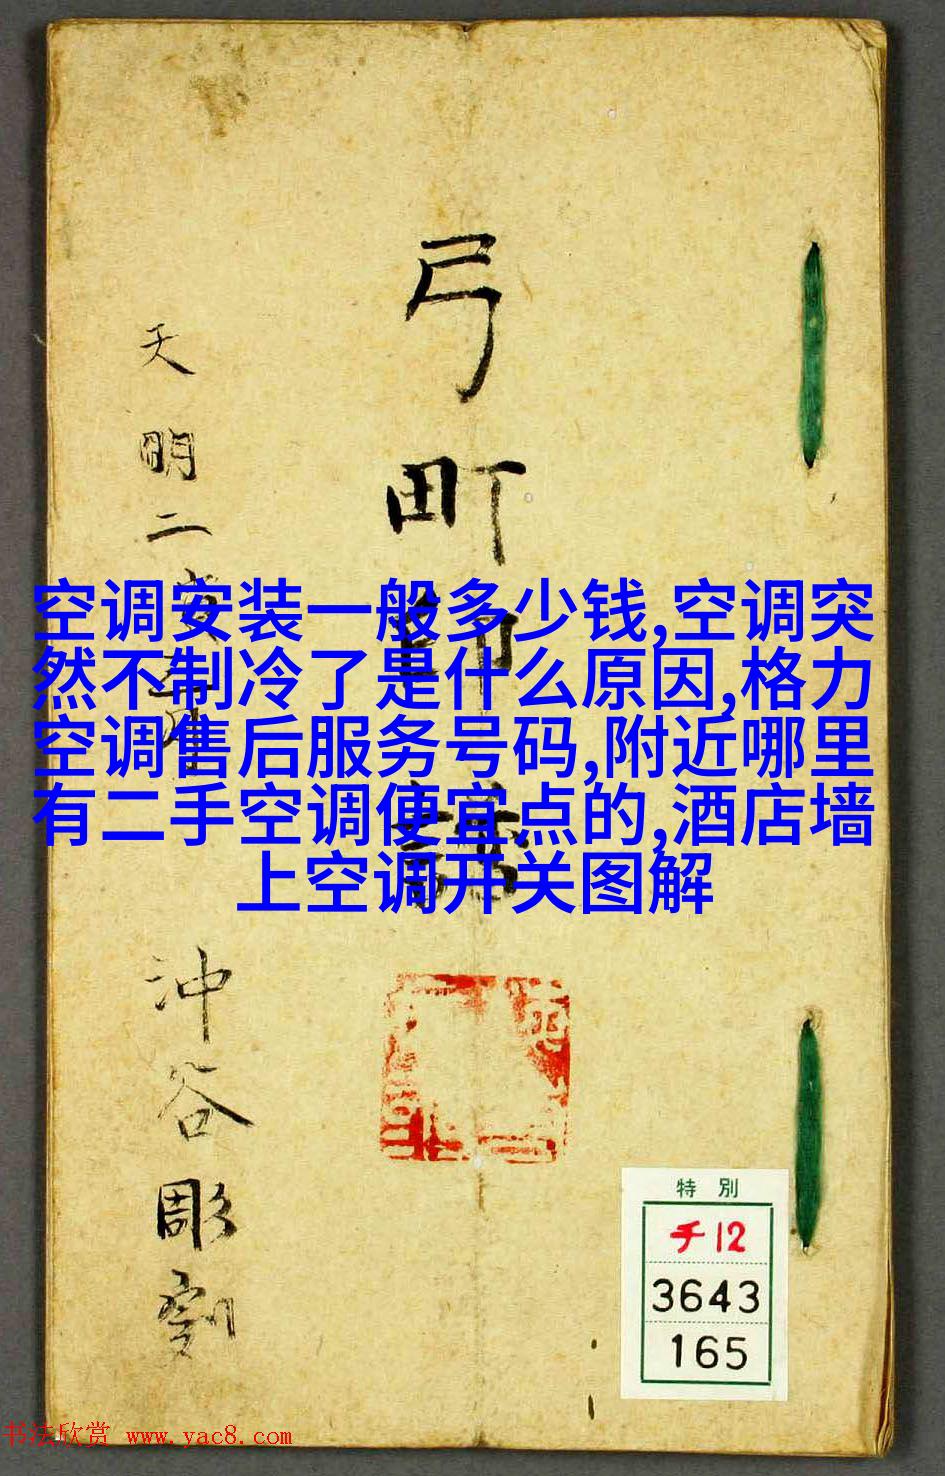 弓町印譜
天明二寅年
沖谷彫刻
空调安装一般多少钱,空调突
然不制冷了是什么原因,格力
空调售后服务号码,附近哪里
有二手空调便宜点的,酒店墙
上空调开关图解
特別
チ12
3643
165
书法欣赏 www.yac8.com